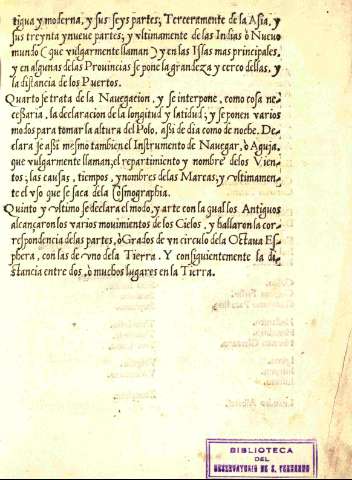 tigua y moderna, y sus seys partes; Terceramente de la Asia, y
sus treynta y nueve partes; y ultimamente de las Indias ò Nuevo
mundo (que vulgarmente llaman) y en las Islas mas principales,
y en algunas delas Provincias se pone la grandeza y cerco dellas, y
la distancia de los Puertos.
Quarto se trata de la Navegacion, y se interpone, como cosa ne-
cessaria, la declaracion de la longitud y latidud; y se ponen varios
modos para tomar la altura del Polo, assi de dia como de noche. De-
clara se assi mesmo tambien el Instrumento de Navegar, ò Aguja,
que vulgarmente llaman, el repartimiento y nombre delos Vien-
tos; las causas, tiempos, y nombres delas Mareas, y ultimamen-
te el uso que se saca dela Cosmographia.
Quinto y ultimo se declara el modo, y arte con la qual los Antiguos
alcançaron los varios movimientos de los Cielos, y hallaron la cor-
respondencia delas partes, ò Grados de un circulo dela Octava Es-
phera, con las de uno dela Tierra. Y consiguientemente la di-
stancia entre dos, ò muchos lugares en la Tierra.
BIBLIOTECA
DEL
OBSERVATORIO DE S. FERNANDO